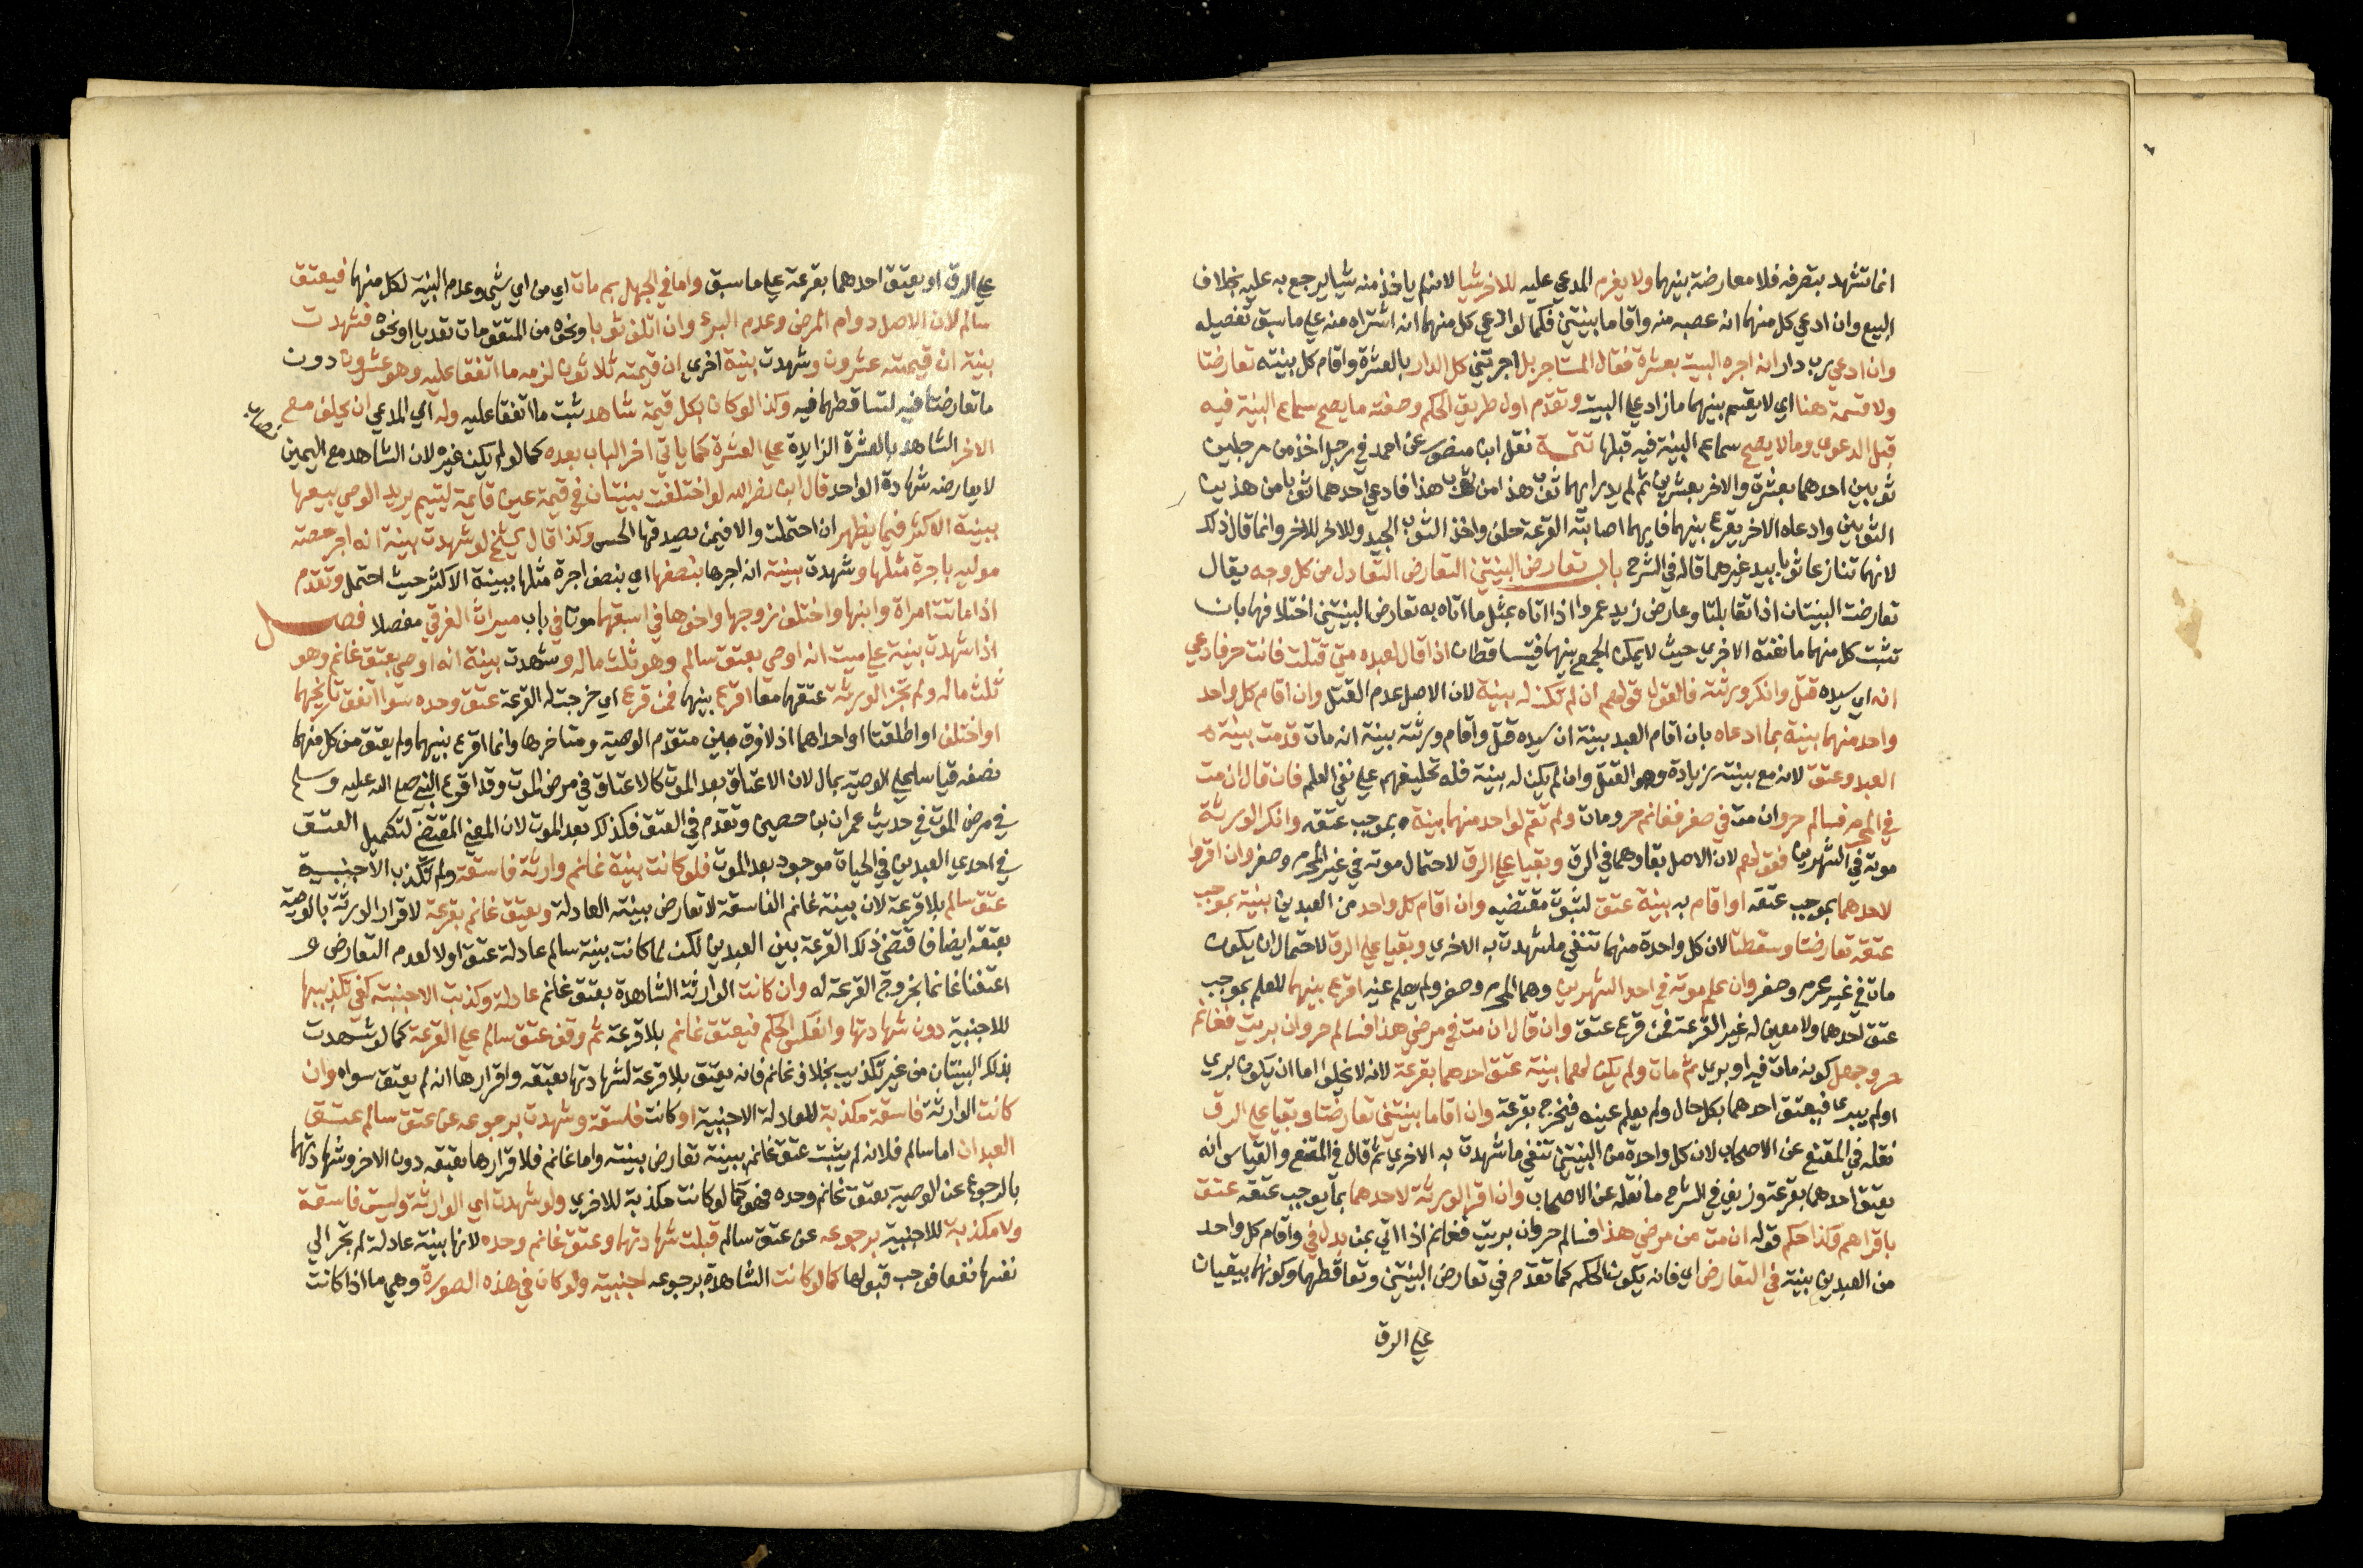 انما تشهد بتصرفه فلا معارضة بينهما ولا يغرم المدعي عليه للاخر شيا لانه لم ياخذ منه شيا ليرجع به عليه بخلاف
البيع وان ادعي كل منهما انه غصبه منه واقاما بينتين فكما لو ادعي كل منهما انه اشتراه منه علي ما سبق تفصيله
وان ادعي رب دار انه اجره البيت بعشرة فقال المستاجر بل اجرتني كل الدار بالعشرة واقام كل بينته تعارضتا
ولا قسمة هنا اي لا يقسم بينهما ما زاد علي البيت وتقدم اول طريق الحكم وصفته ما يصح سماع البينة فيه
قبل الدعوي وما لا يصح سماع البينة فيه قبلها تتمة نقل ابن منصور عن احمد في رجل اخذ من رجلين
ثوبين احدهما بعشرة والاخر بعشرين ثم لم يدر ايهما ثوب هذا من ثوب هذا فادعي احدهما ثوبا من هذين
الثوبين وادعاه الاخر يقرع بينهما فايهما اصابته القرعة حلف واخذ الثوب الجيد وللاخر للاخر وانما قال ذلك
لانهما تنازعا ثوبا بيد غيرهما قاله في الشرح باب تعارض البينتين التعارض التعادل من كل وجه يقال
تعارضت البينتان اذا تقابلتا وعارض زيد عمروا اذا اتاه بمثل ما اتاه به تعارض البينتين اختلافهما بان
تثبت كل منهما ما نفته الاخري حيث لا يمكن الجمع بينهما فيتساقطان اذا قال لعبده متي قتلت فانت حر فادعي
انه اي سيده قتل وانكر ورثته فالقول قولهم ان لم تكن له بينة لان الاصل عدم القتل وان اقام كل واحد
واحد منهما بينة بما ادعاه بان اقام العبد بينة ان سيده قتل واقام ورثته بينة انه مات قدمت بينة
العبد وعتق لان مع بينته زيادة وهو القتل وان لم يكن له بينة فله تحليفهم علي نفي العلم فان قال ان مت
في المحرم فسالم حر وان مت في صفر فغانم حر ومات ولم تقم لواحد منهما بينة بموجب عتقه وانكر الورثة
موته في الشهرين فقولهم لان الاصل بقاوهما في الرق وبقيا علي الرق لاحتمال موته في غير المحرم وصفر وان اقروا
لاحدهما بموجب عتقه او اقام به بينة عتق لثبوت مقتضيه وان اقام كل واحد من العبدين بينة بموجب
عتقه تعارضتا وسقطتا لان كل واحدة منهما تنفي ما شهدت به الاخري وبقيا علي الرق لاحتمال ان يكون
مات في غير محرم وصفر وان علم موته في احد الشهرين وهما المحرم وصفر ولم يعلم عينه اقرع بينهما للعلم بموجب
عتق احدهما ولا معين له غير القرعة فمن قرع عتق وان قال ان مت في مرضي هذا فسالم حر وان بريت فغانم
حر وجهل كونه مات فيه او بري ثم مات ولم يكن لهما بينة عتق احدهما بقرعة لانه لا يخلو اما ان يكون بري
او لم يبرء فيعتق احدهما بكل حال ولم يعلم عينه فيخرج بقرعة وان اقاما بينتين تعارضتا وبقيا علي الرق
نقله في المقنع عن الاصحاب لان كل واحدة من البينتين تنفي ما شهدت به الاخري ثم قال في المقنع والقياس انه
يعتق احدهما بقرعة وزيف في الشرح ما نقله عن الاصحاب وان اقر الورثة لاحدهما بما يوجب عتقه عتق
باقرارهم وكذا حكم قوله ان مت من مرضي هذا فسالم حر وان بريت فغانم اذا اتي بمن بدل في واقام كل واحد
من العبدين بينة في التعارض اي فانه يكون الحكم كما تقدم في تعارض البينتين وتساقطهما وكونهما يبقيان
علي الرق
علي الرق او يعتق احدهما بقرعة علي ما سبق واما في الجهل بم مات اي من اي شي وعدم البينة لكل منهما فيعتق
سالم لان الاصل دوام المرض وعدم البرء وان اتلف ثوبا ونحوه من المتقومات تعديا او نحوه فشهدت
بينة ان قيمته عشرون وشهدت بينة اخري ان قيمته ثلاثون لزمه ما اتفقا عليه وهو عشرون دون
ما تعارضتا فيه لتساقطهما فيه وكذا لو كان بكل قيمة شاهد ثبت ما اتفقا عليه وله اي المدعي ان يحلف مع
الاخر الشاهد بالعشرة الزايدة علي العشرة كما ياتي اخر الباب بعده كما لو لم يكن غيره لان الشاهد مع اليمين
لا يعارضه شهادة الواحد قال ابن نصر الله لو اختلفت بينتان في قيمة عين قايمة ليتيم يريد الوصي بيعها
ببينة الاكثر فيما يظهر ان احتملت والا فبمن يصدقها الحس وكذا قال الشيخ لو شهدت بينة انه اجر حصته
موليه باجرة مثلها وشهدت بينة انه اجرها بنصفها اي بنصف اجرة مثلها ببينة الاكثر حيث احتمل وتقدم
اذا ماتت امراة وابنها واختلف زوجها واخوها في اسبقهما موتا في باب ميراث الغرقي مفصلا فصل
اذا شهدت بينة علي ميت انه اوصي بعتق سالم وهو ثلث ماله وشهدت بينة انه اوصي بعتق غانم وهو
ثلث ماله ولم تجز الورثة عتقهما معا اقرع بينهما فمن قرع اي خرجت له القرعة عتق وحده سوا اتفق تاريخهما
او اختلف او اطلقتا او احداهما اذ لا فرق بين متقدم الوصية ومتاخرها وانما اقرع بينهما ولم يعتق من كل منهما
نصفه قياسا علي الوصية بمال لان الاعتاق بعد الموت كالاعتاق في مرض الموت وقد اقرع النبي صلي الله عليه وسلم
في مرض الموت في حديث عمران بن حصين وتقدم في العتق فكذلك بعد الموت لان المعني المقتضي لتكميل العتق
في احدي العبدين في الحياة موجود بعد الموت فلو كانت بينة غانم وارثة فاسقة ولم تكذب الاجنبية
عتق سالم بلا قرعة لان بينة غانم الفاسقة لا تعارض بينته العادلة ويعتق غانم بقرعة لاقرار الورثة بالوصية
بعتقه ايضا فاقتضي ذلك القرعة بين العبدين لكن لما كانت بينة سالم عادلة عتق اولا لعدم التعارض و
اعتقنا غانما بخروج القرعة له وان كانت الوارثة الشاهدة بعتق غانم عادلة وكذبت الاجنبية كفي تكذيبها
للاجنبية دون شهادتها وانعكس الحكم فيعتق غانم بلا قرعة ثم وقف عتق سالم علي القرعة كما لو شهدت
بذلك البينتان من غير تكذيب بخلاف غانم فانه يعتق بلا قرعة لشهادتها بعتقه واقرارها انه لم يعتق سواه وان
كانت الوارثة فاسقة مكذبة للعادلة الاجنبية او كانت فاسقة وشهدت برجوعه عن عتق سالم عتق
العبدان اما سالم فلانه لم يثبت عتق غانم ببينة تعارض بينته واما غانم فلاقرارها بعتقه دون الاخر وشهادتها
بالرجوع عن الوصية بعتق غانم وحده فهو كما لو كانت مكذبة للاخري ولو شهدت اي الوارثة وليست فاسقة
ولا مكذبة للاجنبية برجوعه عن عتق سالم قبلت شهادتها وعتق غانم وحده لانها بينة عادلة لم تجر الي
نفسها نفعا فوجب قبولها كما لو كانت الشاهدة برجوعه اجنبية ولو كان في هذه الصورة وهي ما اذا كانت